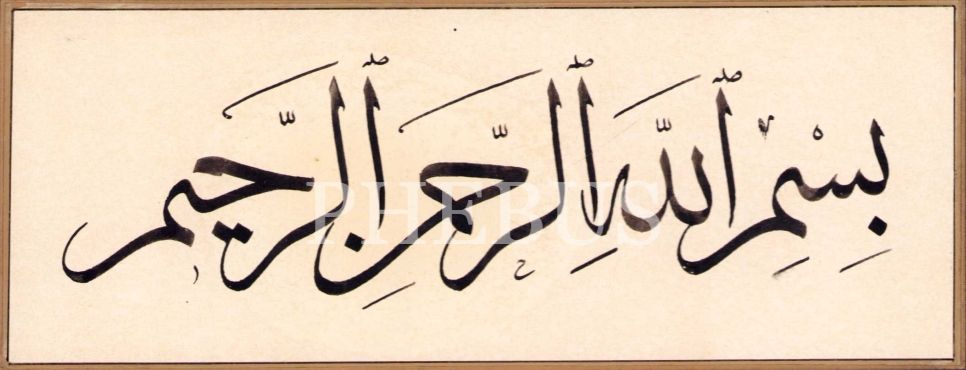 بِسْمِ ٱللَّهِ ٱلرَّحمن ٱلرَّحيم
PHEBUS